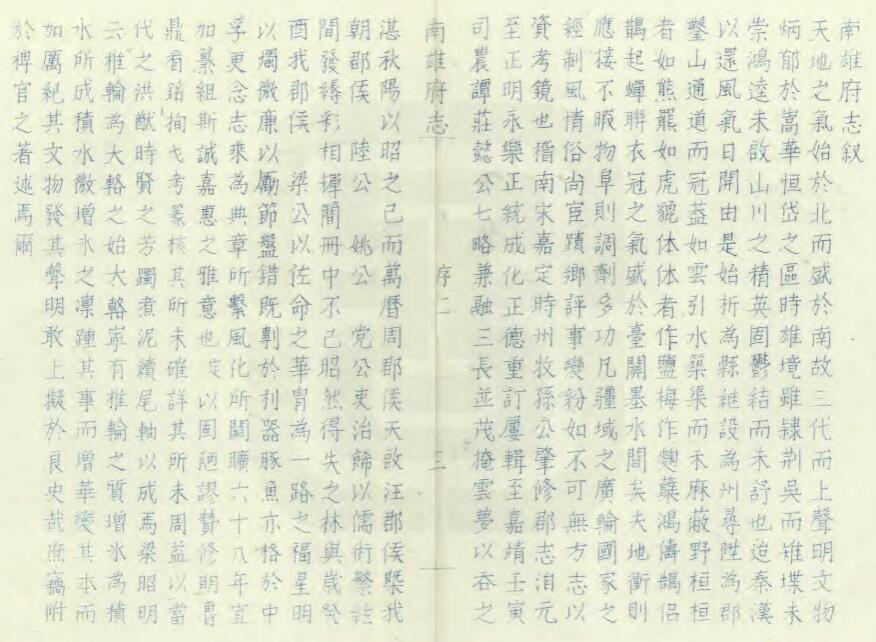 南雄府志叙
天地之氣始於北而盛於南故三代而上聲明文物
炳郁於嵩華恒岱之區時雄境雖隸荆吳而雉堞未
崇鴻逵未啟山川之精英固鬱結而未舒也迨秦漢
以還風氣日開由是始折為縣継設為州尋陞為郡
鑿山通道而冠蓋如雲引水築渠而禾麻蔽野桓桓
者如熊羆如虎貔体体者作鹽梅作麯蘗鴻儔鵠侶
鵲起蟬聯衣冠之氣盛於臺閣墨水間矣夫地衝則
應接不暇物阜則調劑多功凡疆域之廣輪國家之
經制風情俗尚宦蹟鄉評事變紛如不可無方志以
資考鏡也稽南宋嘉定時州牧孫公肇修郡志洎元
至正明永樂正統成化正德重訂屢輯至嘉靖壬寅
司農譚莊懿公七略兼融三長並茂掩雲夢以吞之
南雄府志
序二
三
湛秋陽以昭之已而萬曆周郡侯天啟汪郡侯槩我
朝郡侯 陸公 姚公 党公吏治餙以儒術繁
間發縟彩相揮簡冊中不已昭然得失之林與歲癸
酉我郡侯 梁公以佐命之華胄為一路之福星明
以燭微廉以勵節盤錯既剸於利器豚魚亦格於中
孚更念志乘為典章所繫風化所關曠六十八年宜
加纂組斯誠嘉惠之雅意也 以固陋謬贊修期魯
鼎肴 考篆核其所未確詳其所未周益以當
代之洪猷時賢之芳躅煮泥續尾軸以成焉梁昭明
云椎輪為大輅之始大輅寧有椎輪之質增冰為積
水所成積水微增冰之凛踵其事而增華變其本而
加厲紀其文物發其聲明敢上擬於良史哉庶竊附
於稗官之著述焉爾